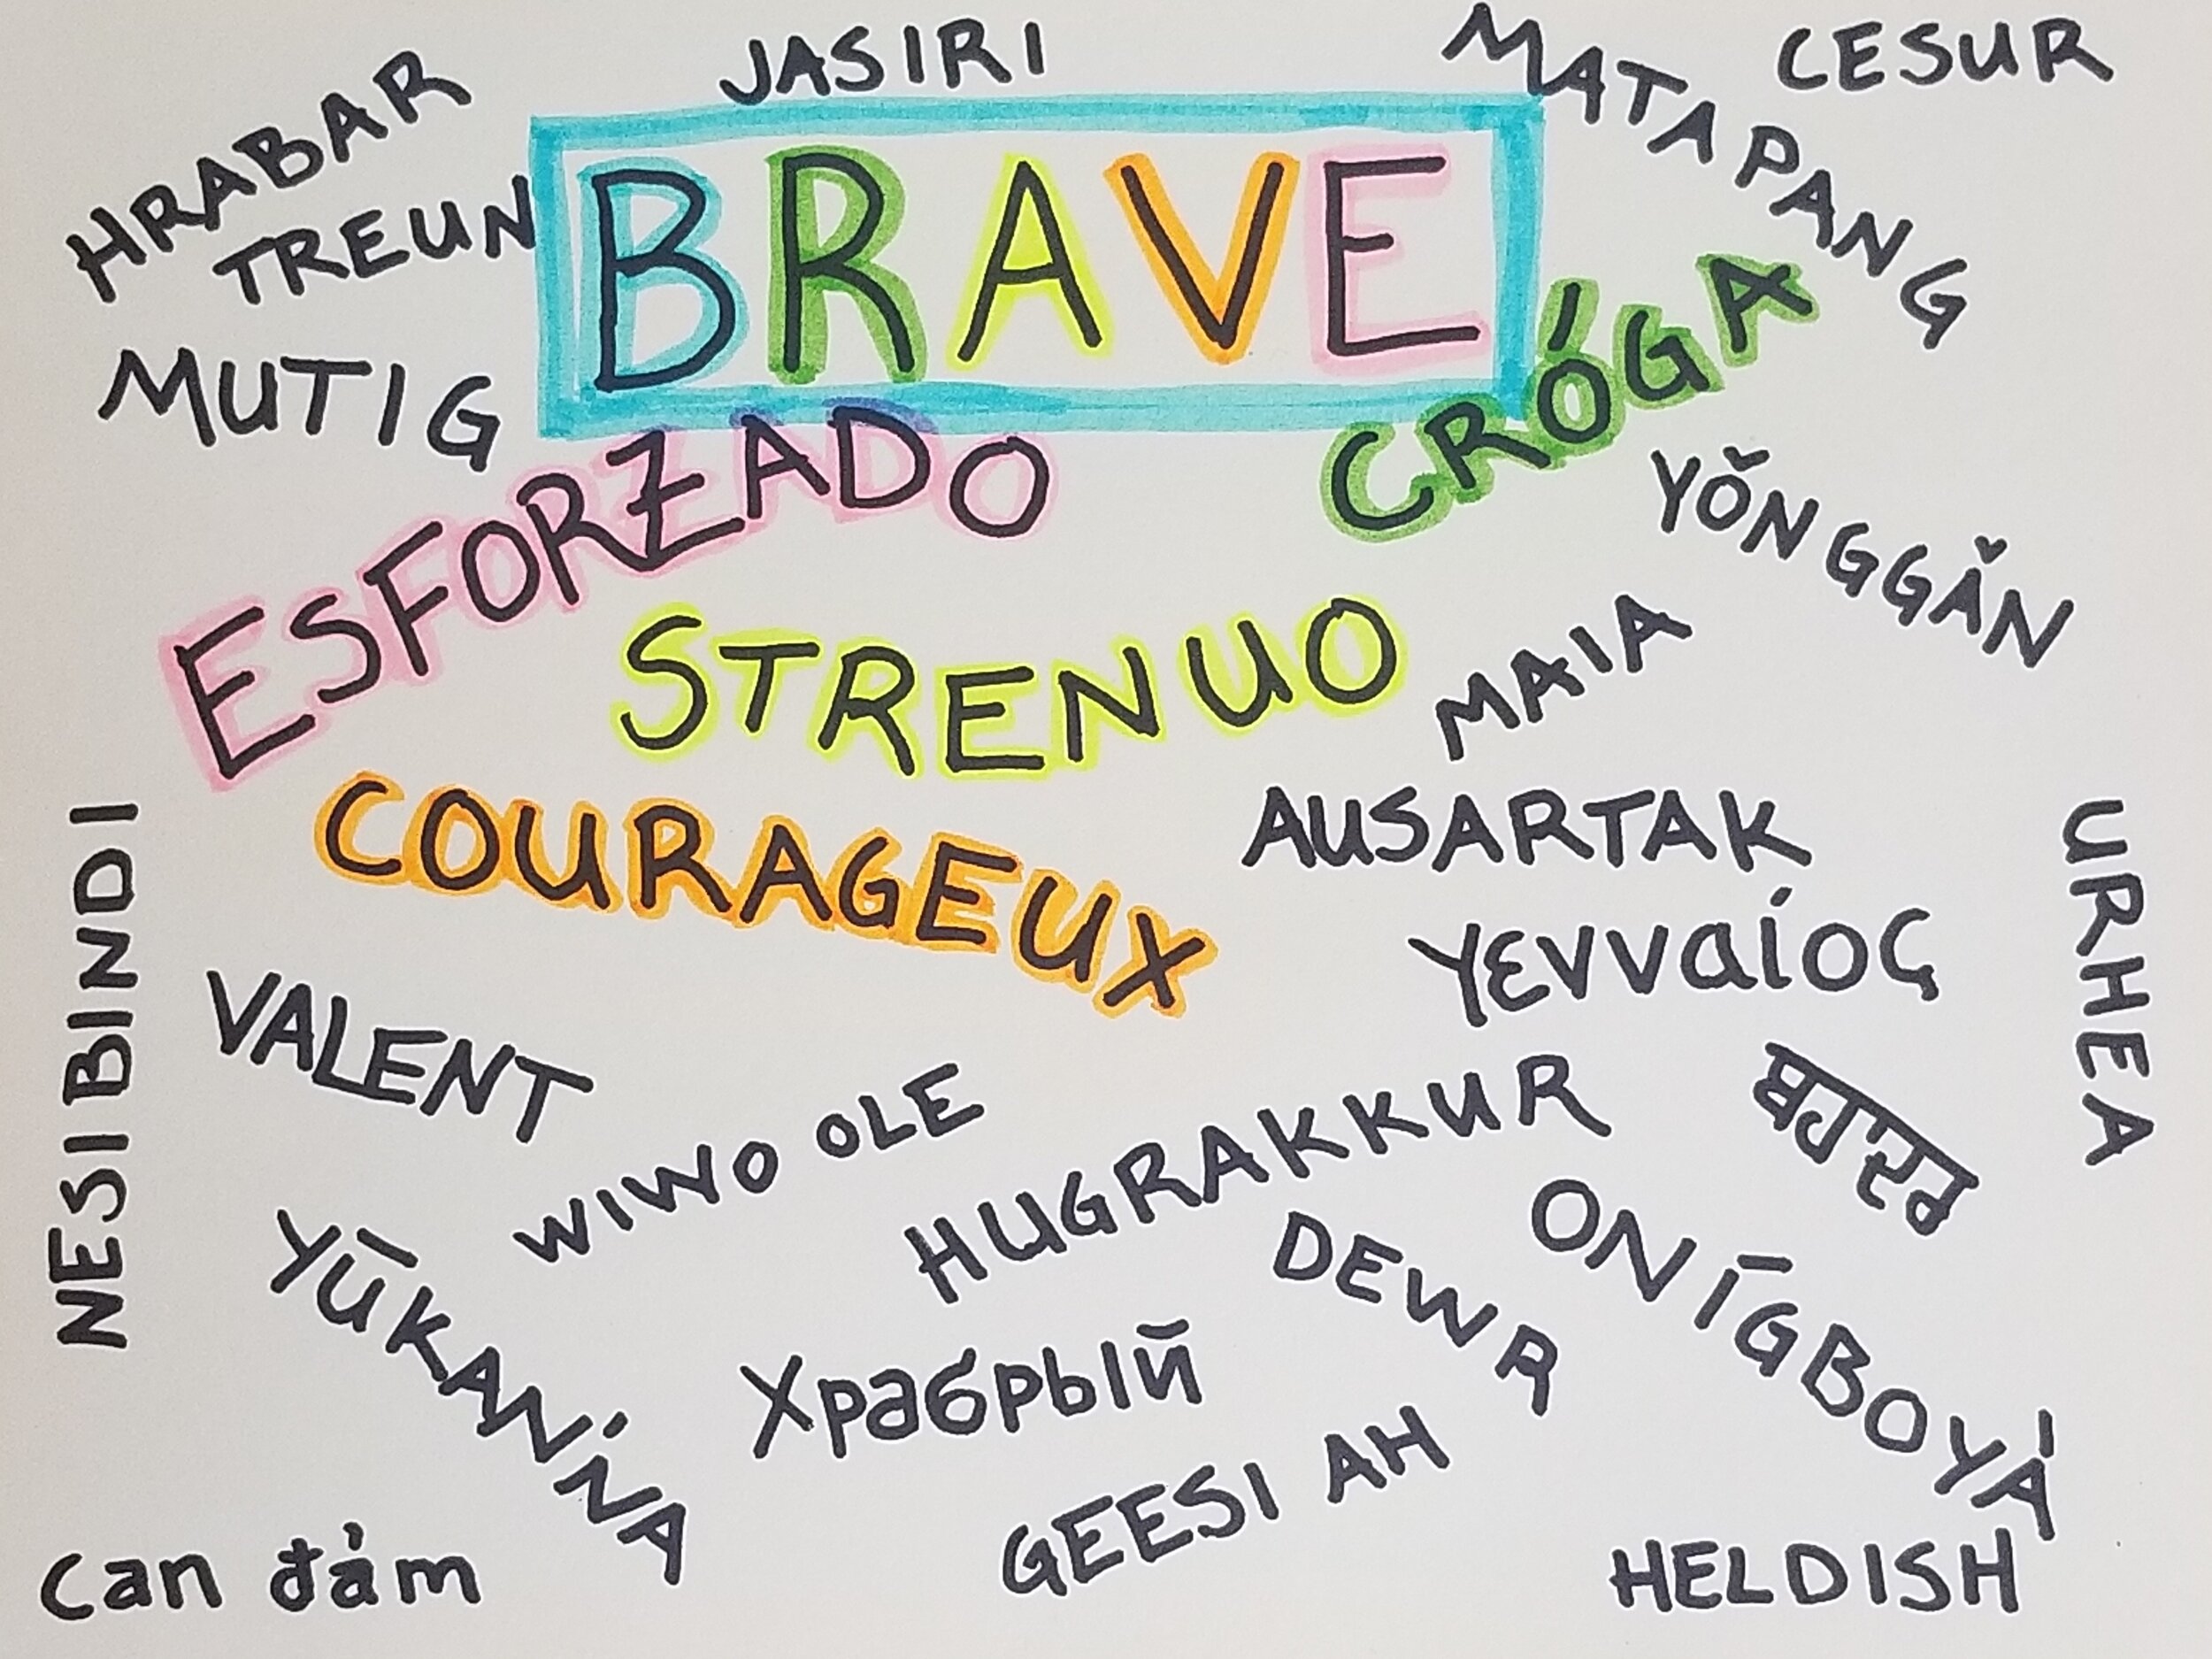 JASIRI
MATAPANG
CESUR
HRABAR
TREUN
BRAVE
MUTIG
CRÓGA
ESFORZADO
YǑNGGǍN
STRENUO
MAIA
COURAGEUX
AUSARTAK
URHEA
NESIBINDI
γενναίος
VALENT
WIWO OLE
HUGRAKKUR
YŪKAN'NA
DEWR
ONÍGBOYÀ
Храбрый
GEESI AH
Can đảm
HELDISH